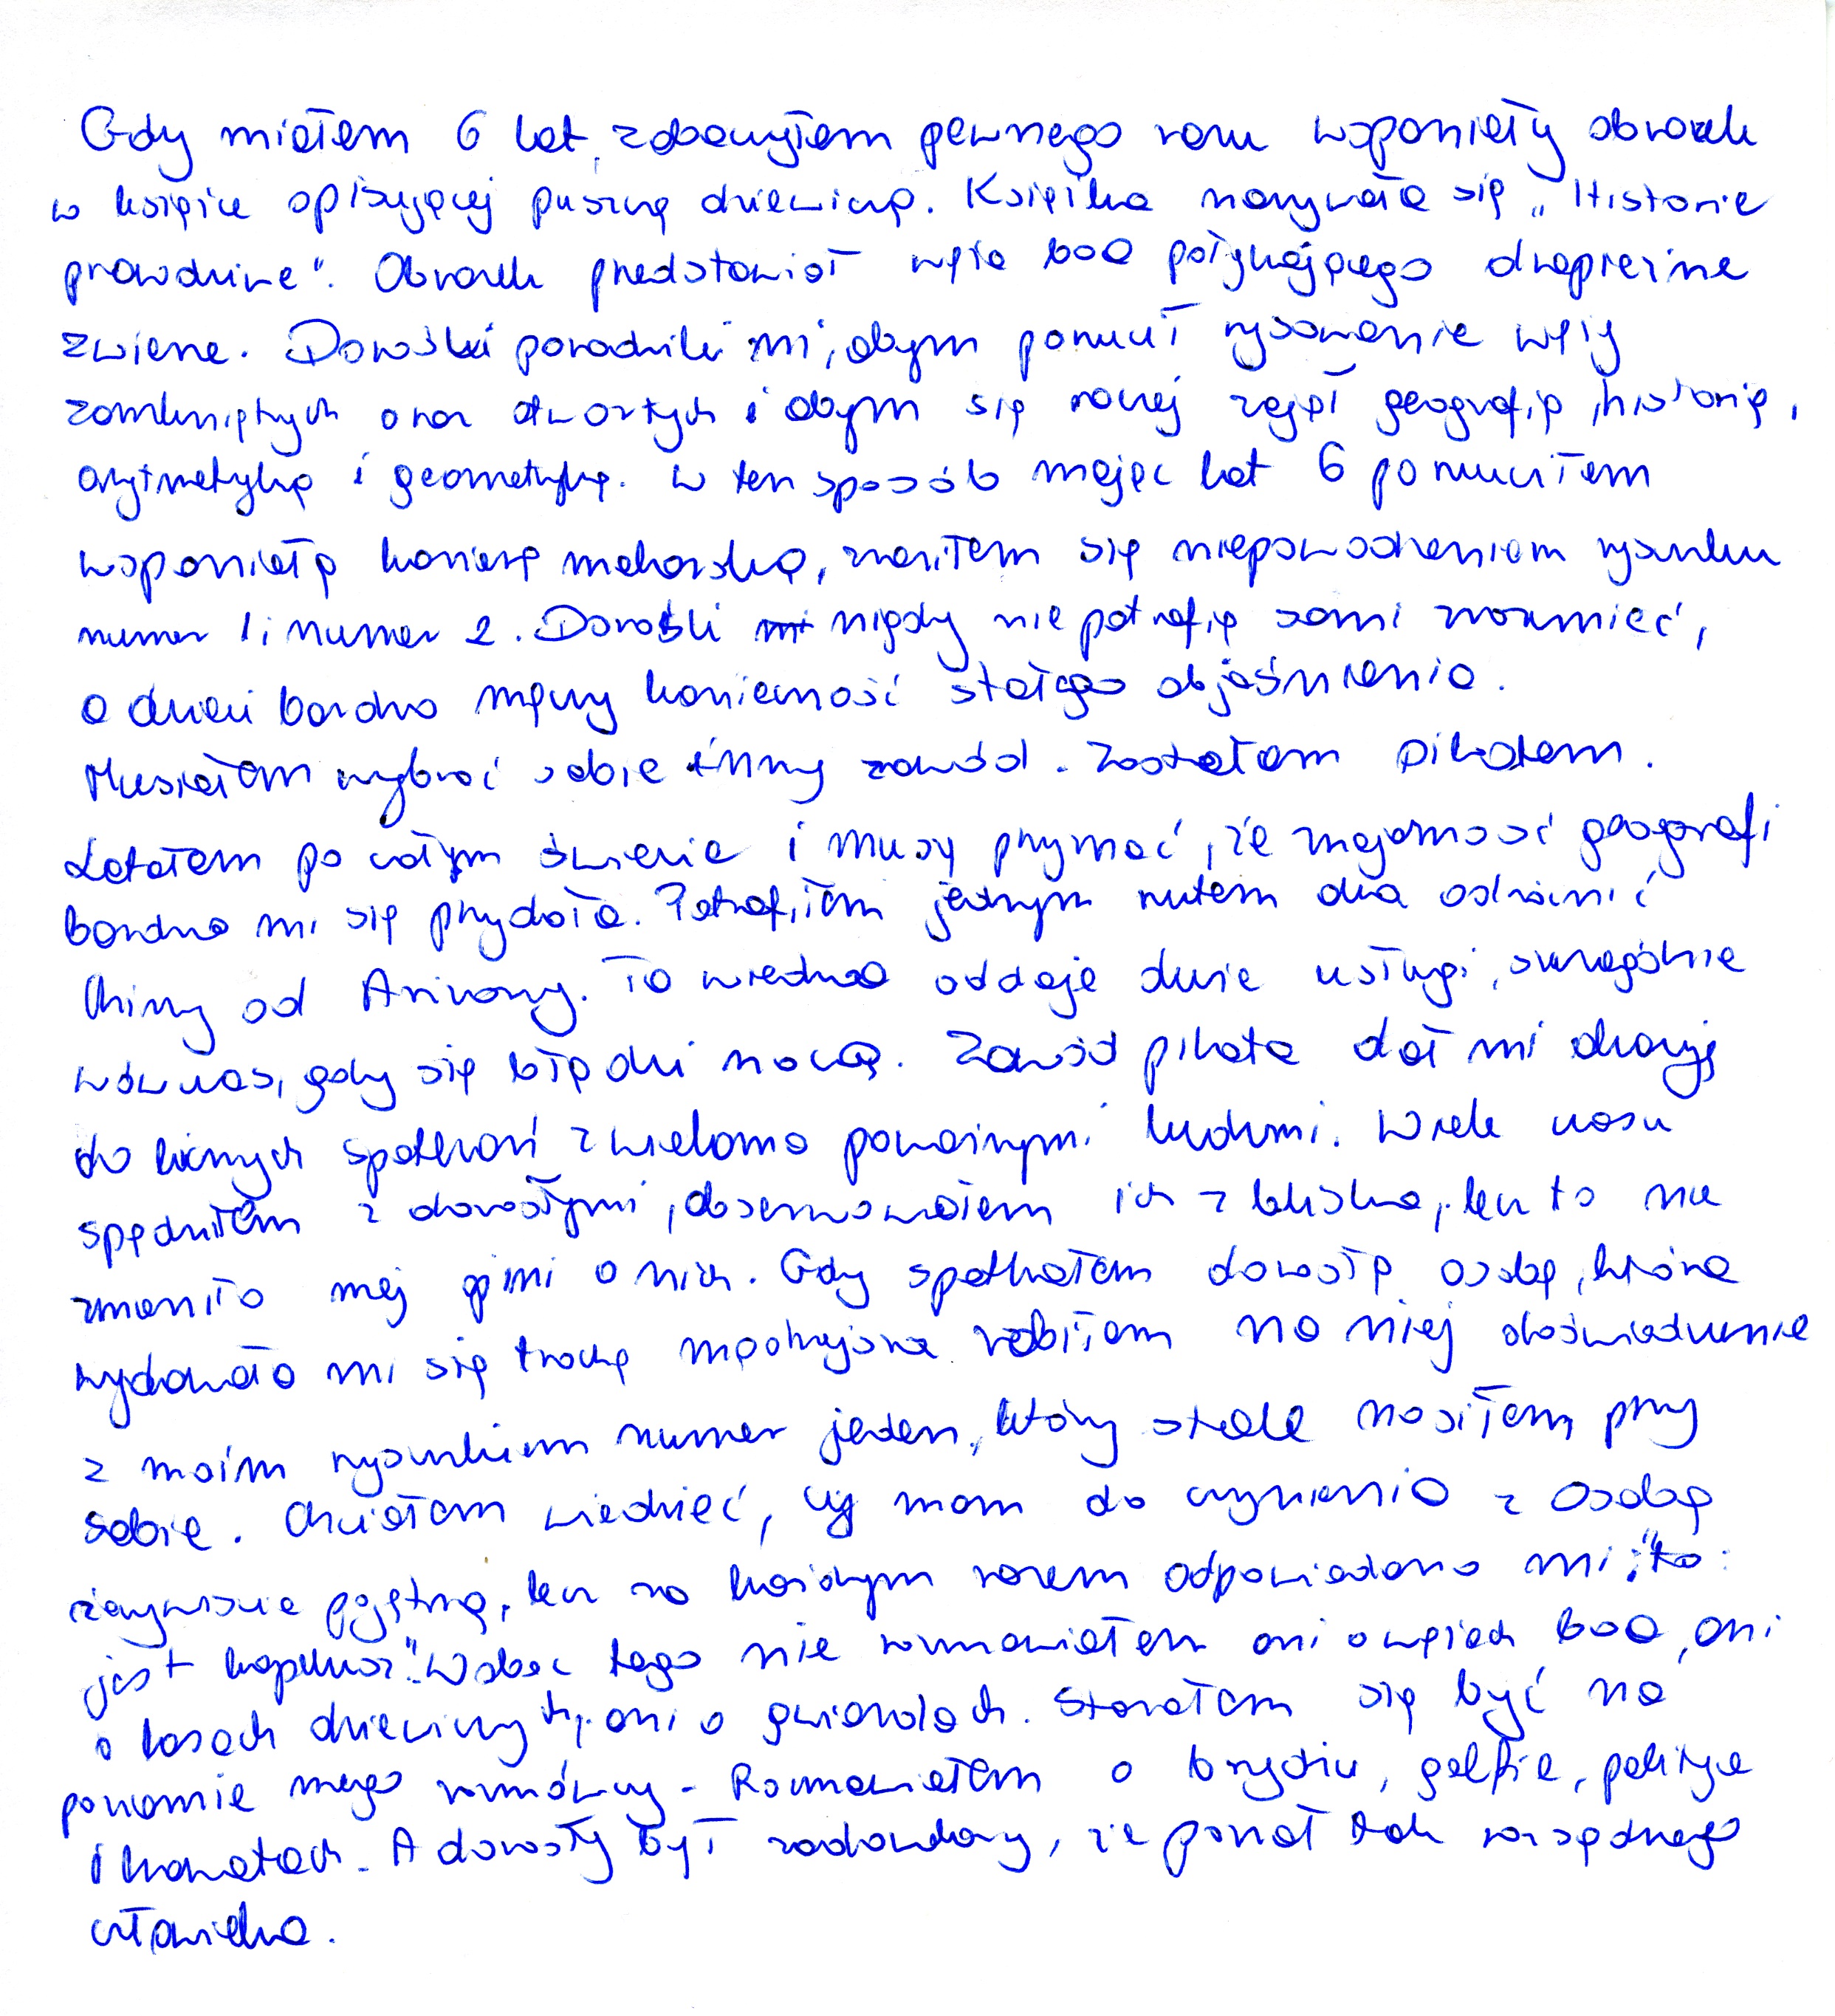 Gdy miałem 6 lat, zobaczyłem pewnego razu wspaniały obrazek
w książce opisującej puszczę dziewiczą. Książka nazywała się „Historie
prawdziwe". Obrazek przedstawiał węża boa połykającego drapieżne
zwierzę. Dorośli poradzili mi, abym porzucił rysowanie węży
zamkniętych oraz otwartych i abym się raczej zajął geografią, historią,
arytmetyką i geometryką. W ten sposób mając lat 6 porzuciłem
wspaniałą karierę malarską, zraziłem się niepowodzeniem rysunku
numer 1 i numer 2. Dorośli nigdy nie potrafią sami zrozumieć,
a dzieci bardzo męczy konieczność stałego objaśniania.
Musiałem wybrać sobie inny zawód. Zostałem pilotem.
Latałem po całym świecie i muszę przyznać, że znajomość geografi
bardzo mi się przydała. Potrafiłem jednym rzutem oka odróżnić
Chiny od Arizony. To wiedza oddaje duże usługi, szczególnie
wówczas, gdy się błądzi nocą. Zawód pilota dał mi okazję
do licznych spotkań z wieloma poważnymi ludźmi. Wiele czasu
spędziłem z dorosłymi, obserwowałem ich z bliska, lecz to nie
zmieniło mej opini o nich. Gdy spotkałem dorosłą osobę, która
wydawała mi się trochę mądrzejsza robiłem na niej doświadczenie
z moim rysunkiem numer jeden, który stale nosiłem przy
sobie. Chciałem wiedzieć, czy mam do czynienia z osobą
rzeczywiście pojętną, lecz za każdym razem odpowiadano mi: „to
jest kapelusz". Wobec tego nie rozmawiałem ani o wężach boa, ani
o lasach dziewiczych, ani o gwiazdach. Starałem się być na
poziomie mego rozmówcy. Rozmawiałem o brydżu, golfie, polityce
i krawatach. A dorosły był zadowolony, że poznał tak rozsądnego
człowieka.